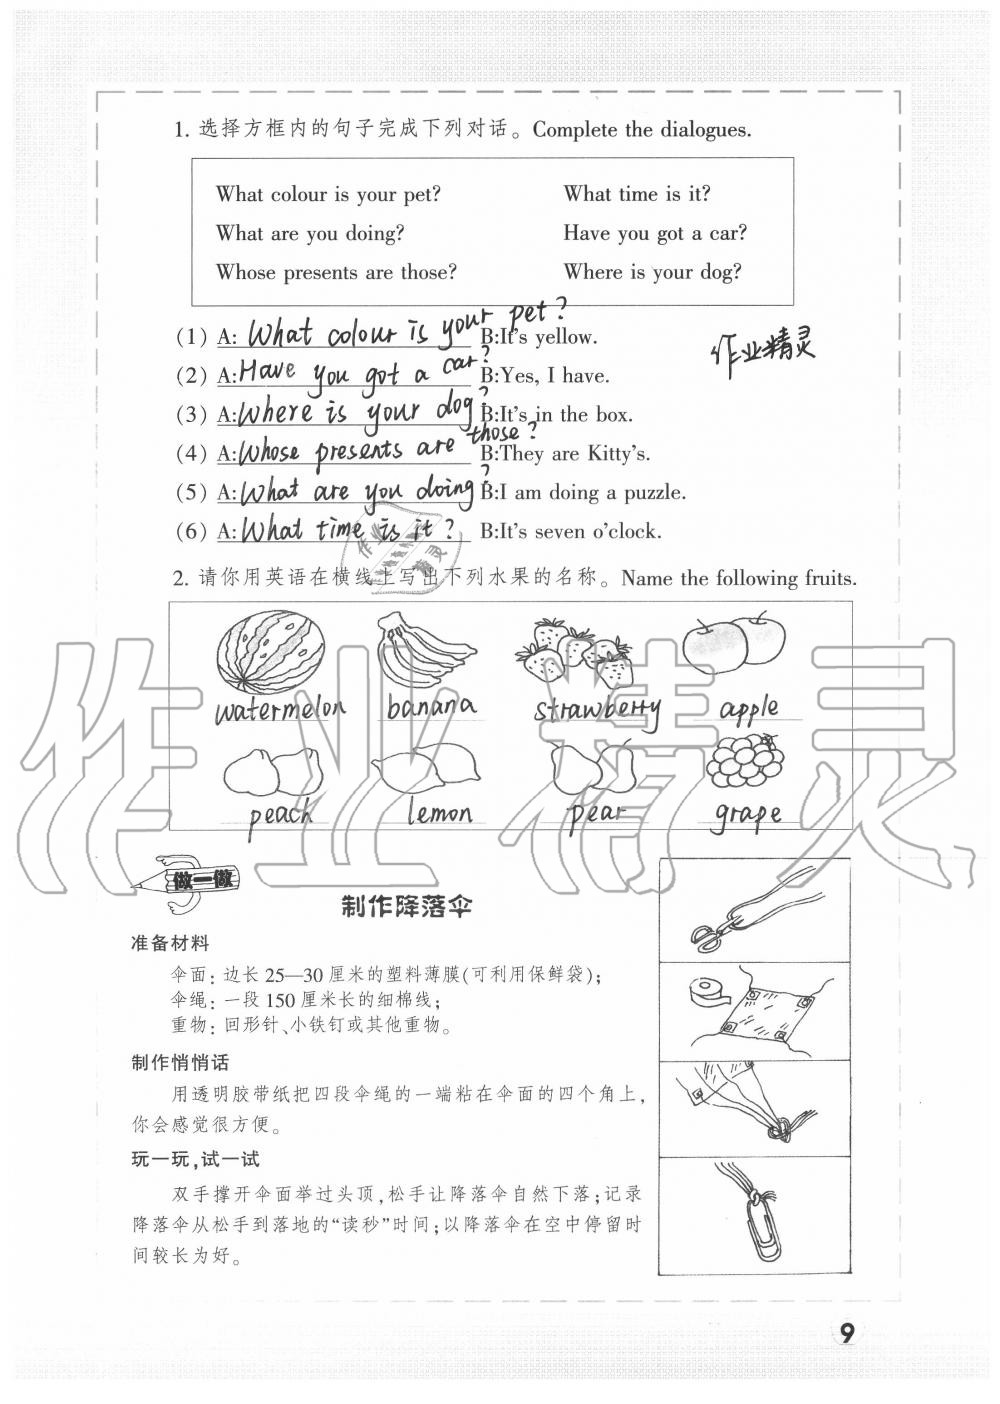 1. 选择方框内的句子完成下列对话。Complete the dialogues.
What colour is your pet? What time is it?
What are you doing? Have you got a car?
Whose presents are those? Where is your dog?
(1) A: What colour is your pet? B:It's yellow.
作业精灵
(2) A:Have you got a car? B:Yes, I have.
(3) A:Where is your dog? B:It's in the box.
(4) A:Whose presents are those? B:They are Kitty's.
(5) A:What are you doing? B:I am doing a puzzle.
(6) A:What time is it? B:It's seven o'clock.
作业精灵
2. 请你用英语在横线上写出下列水果的名称。Name the following fruits.
watermelon banana strawberry apple
peach lemon pear grape
作业精灵
做一做
制作降落伞
准备材料
伞面: 边长 25—30 厘米的塑料薄膜(可利用保鲜袋);
伞绳: 一段 150 厘米长的细棉线;
重物: 回形针、小铁钉或其他重物。
制作悄悄话
用透明胶带纸把四段伞绳的一端粘在伞面的四个角上,
你会感觉很方便。
玩一玩,试一试
双手撑开伞面举过头顶,松手让降落伞自然下落;记录
降落伞从松手到落地的“读秒”时间;以降落伞在空中停留时
间较长为好。
9